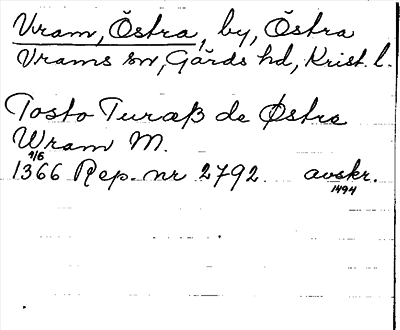 Vram, Östra, by, Östra
Vrams sn, Gärds hd, Krist. l.
Tosto Turaß de Østre
Wram M.
1/6
1366 Rep. nr 2792. avskr.
1494